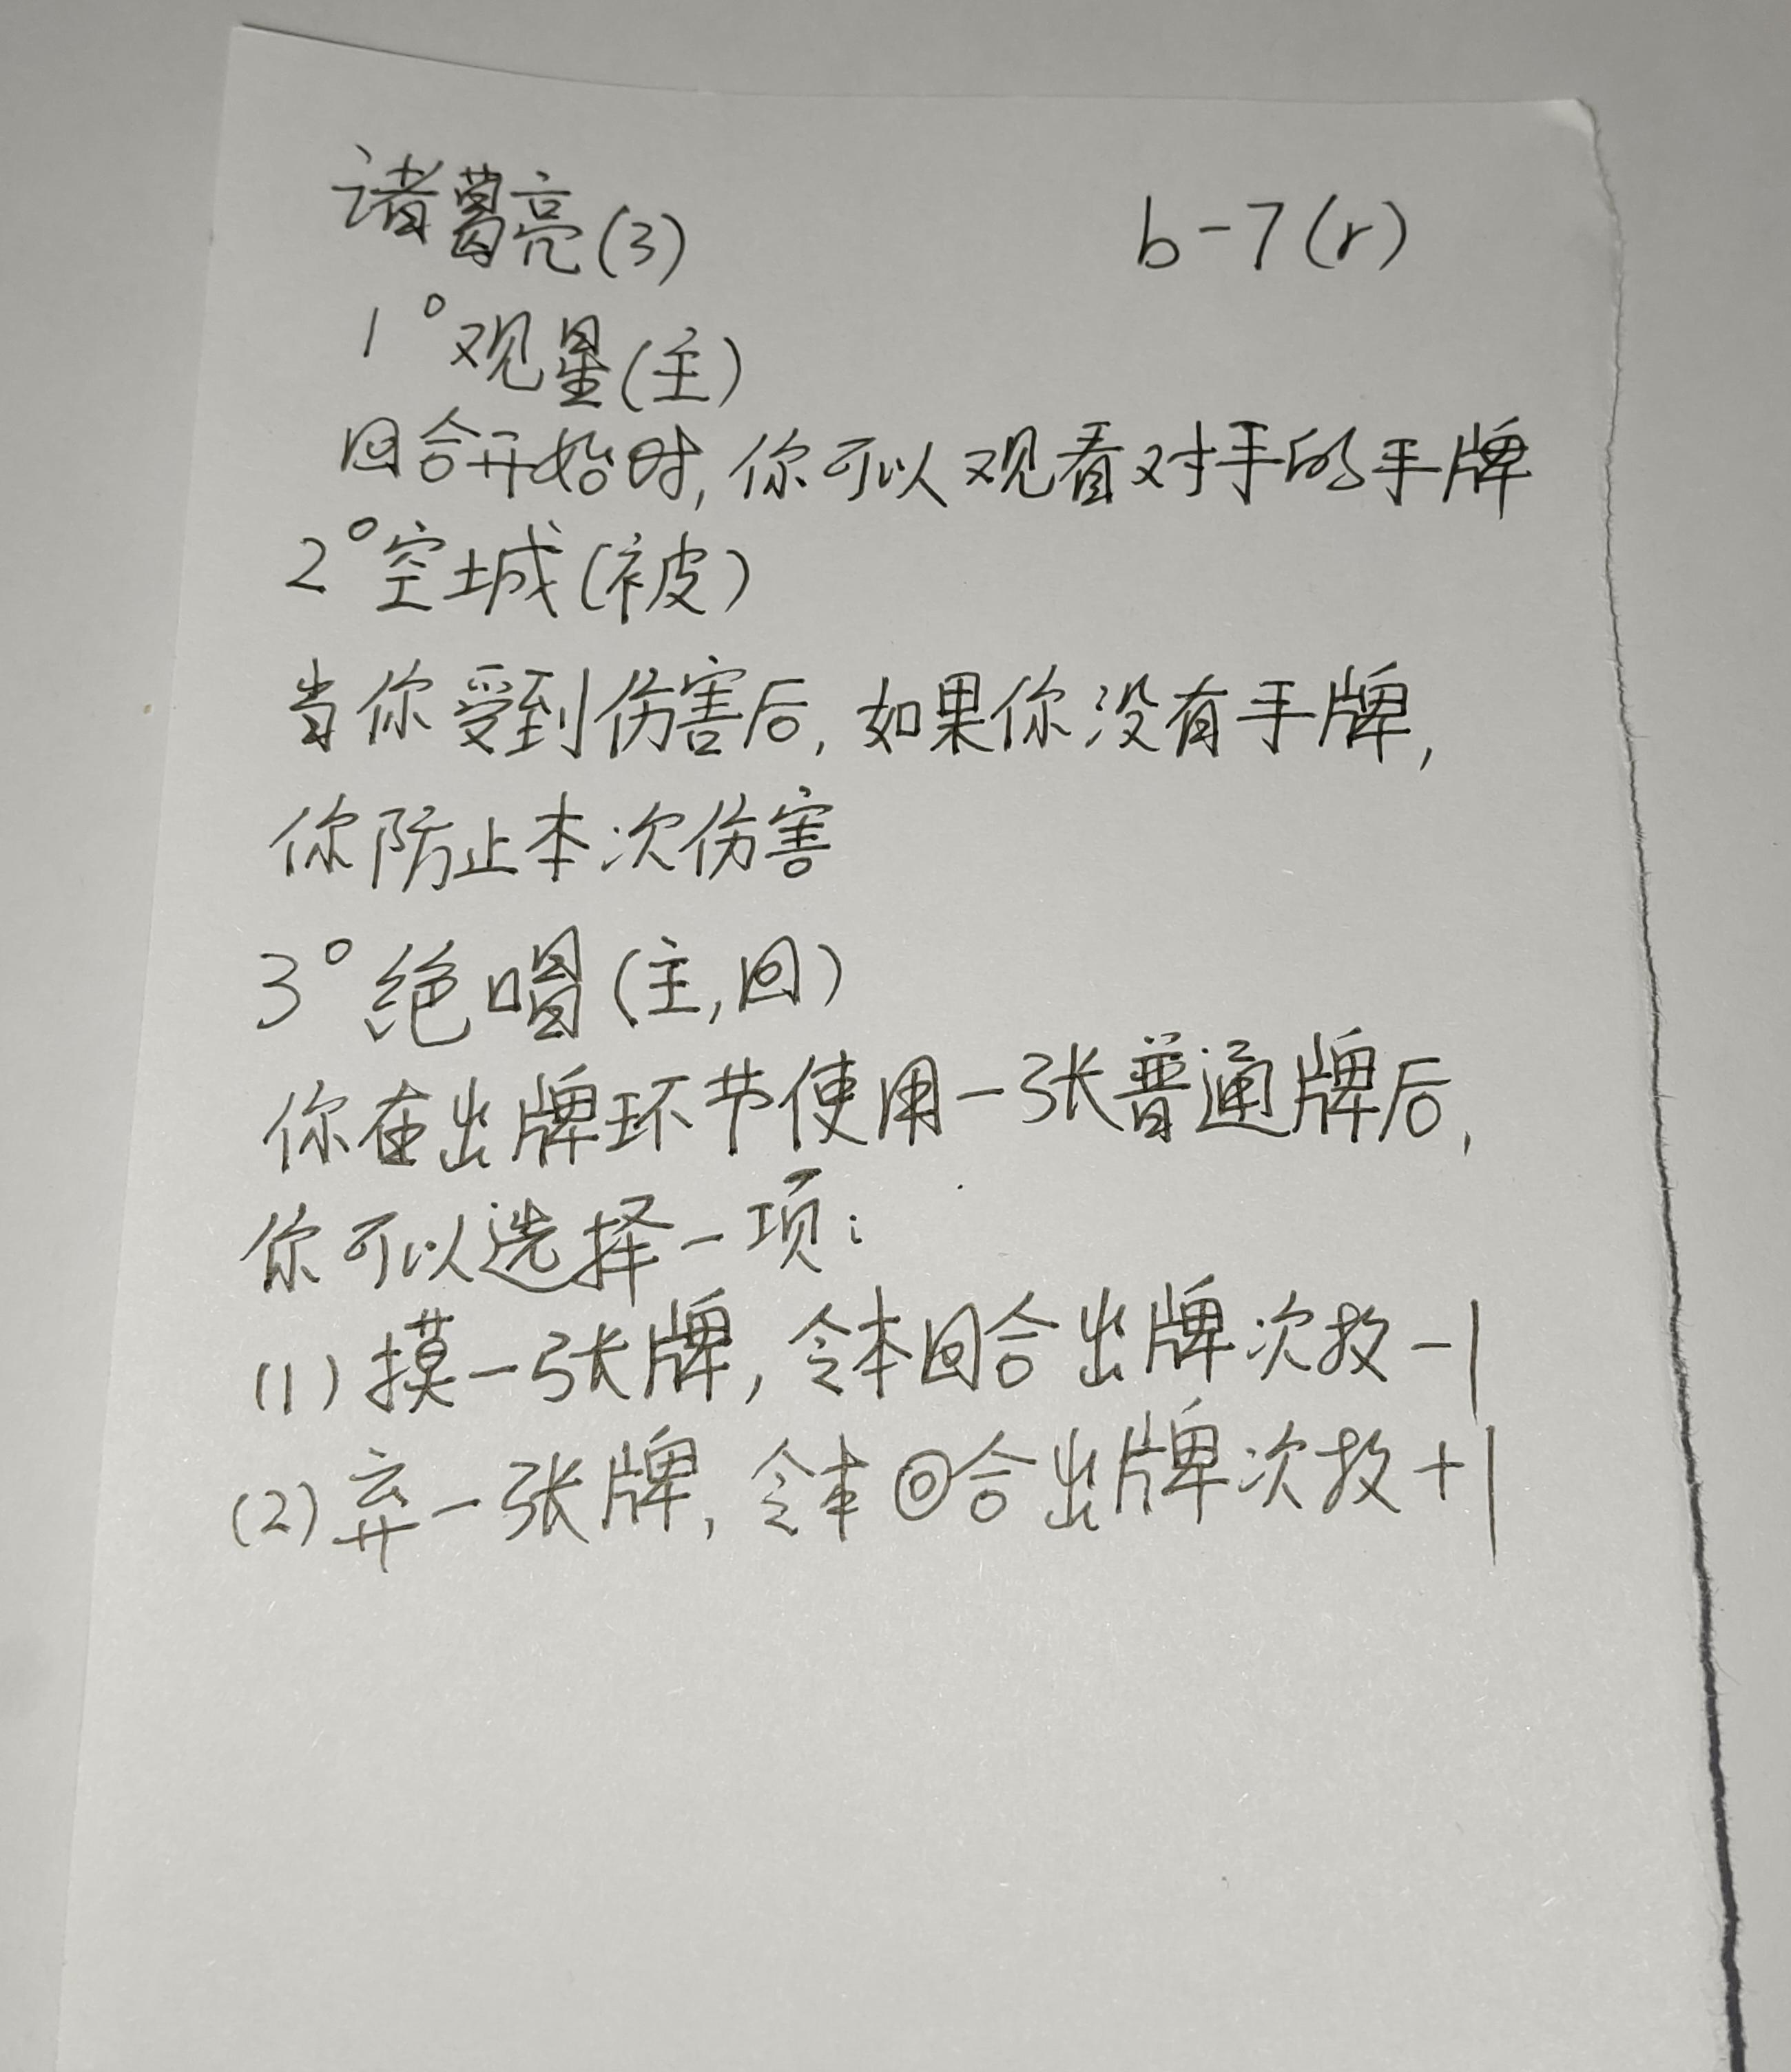 诸葛亮(3) b-7(r)
1°观星(主)
回合开始时,你可以观看对手的手牌
2°空城(被)
当你受到伤害后,如果你没有手牌,
你防止本次伤害
3°绝唱(主,回)
你在出牌环节使用一张普通牌后,
你可以选择一项:
(1)摸一张牌,令本回合出牌次数-1
(2)弃一张牌,令本回合出牌次数+1